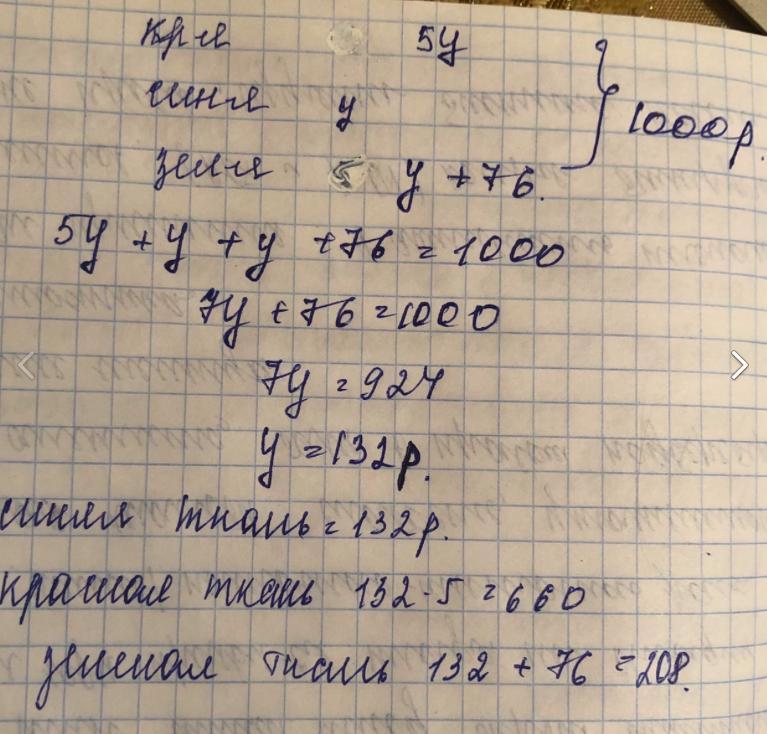 кр-я 5y
синя y } 1000р.
зел-я y + 76.
5y + y + y + 76 = 1000
7y + 76 = 1000
7y = 924
y = 132р.
синяя ткань = 132р.
красная ткань 132 · 5 = 660
зеленая ткань 132 + 76 = 208.